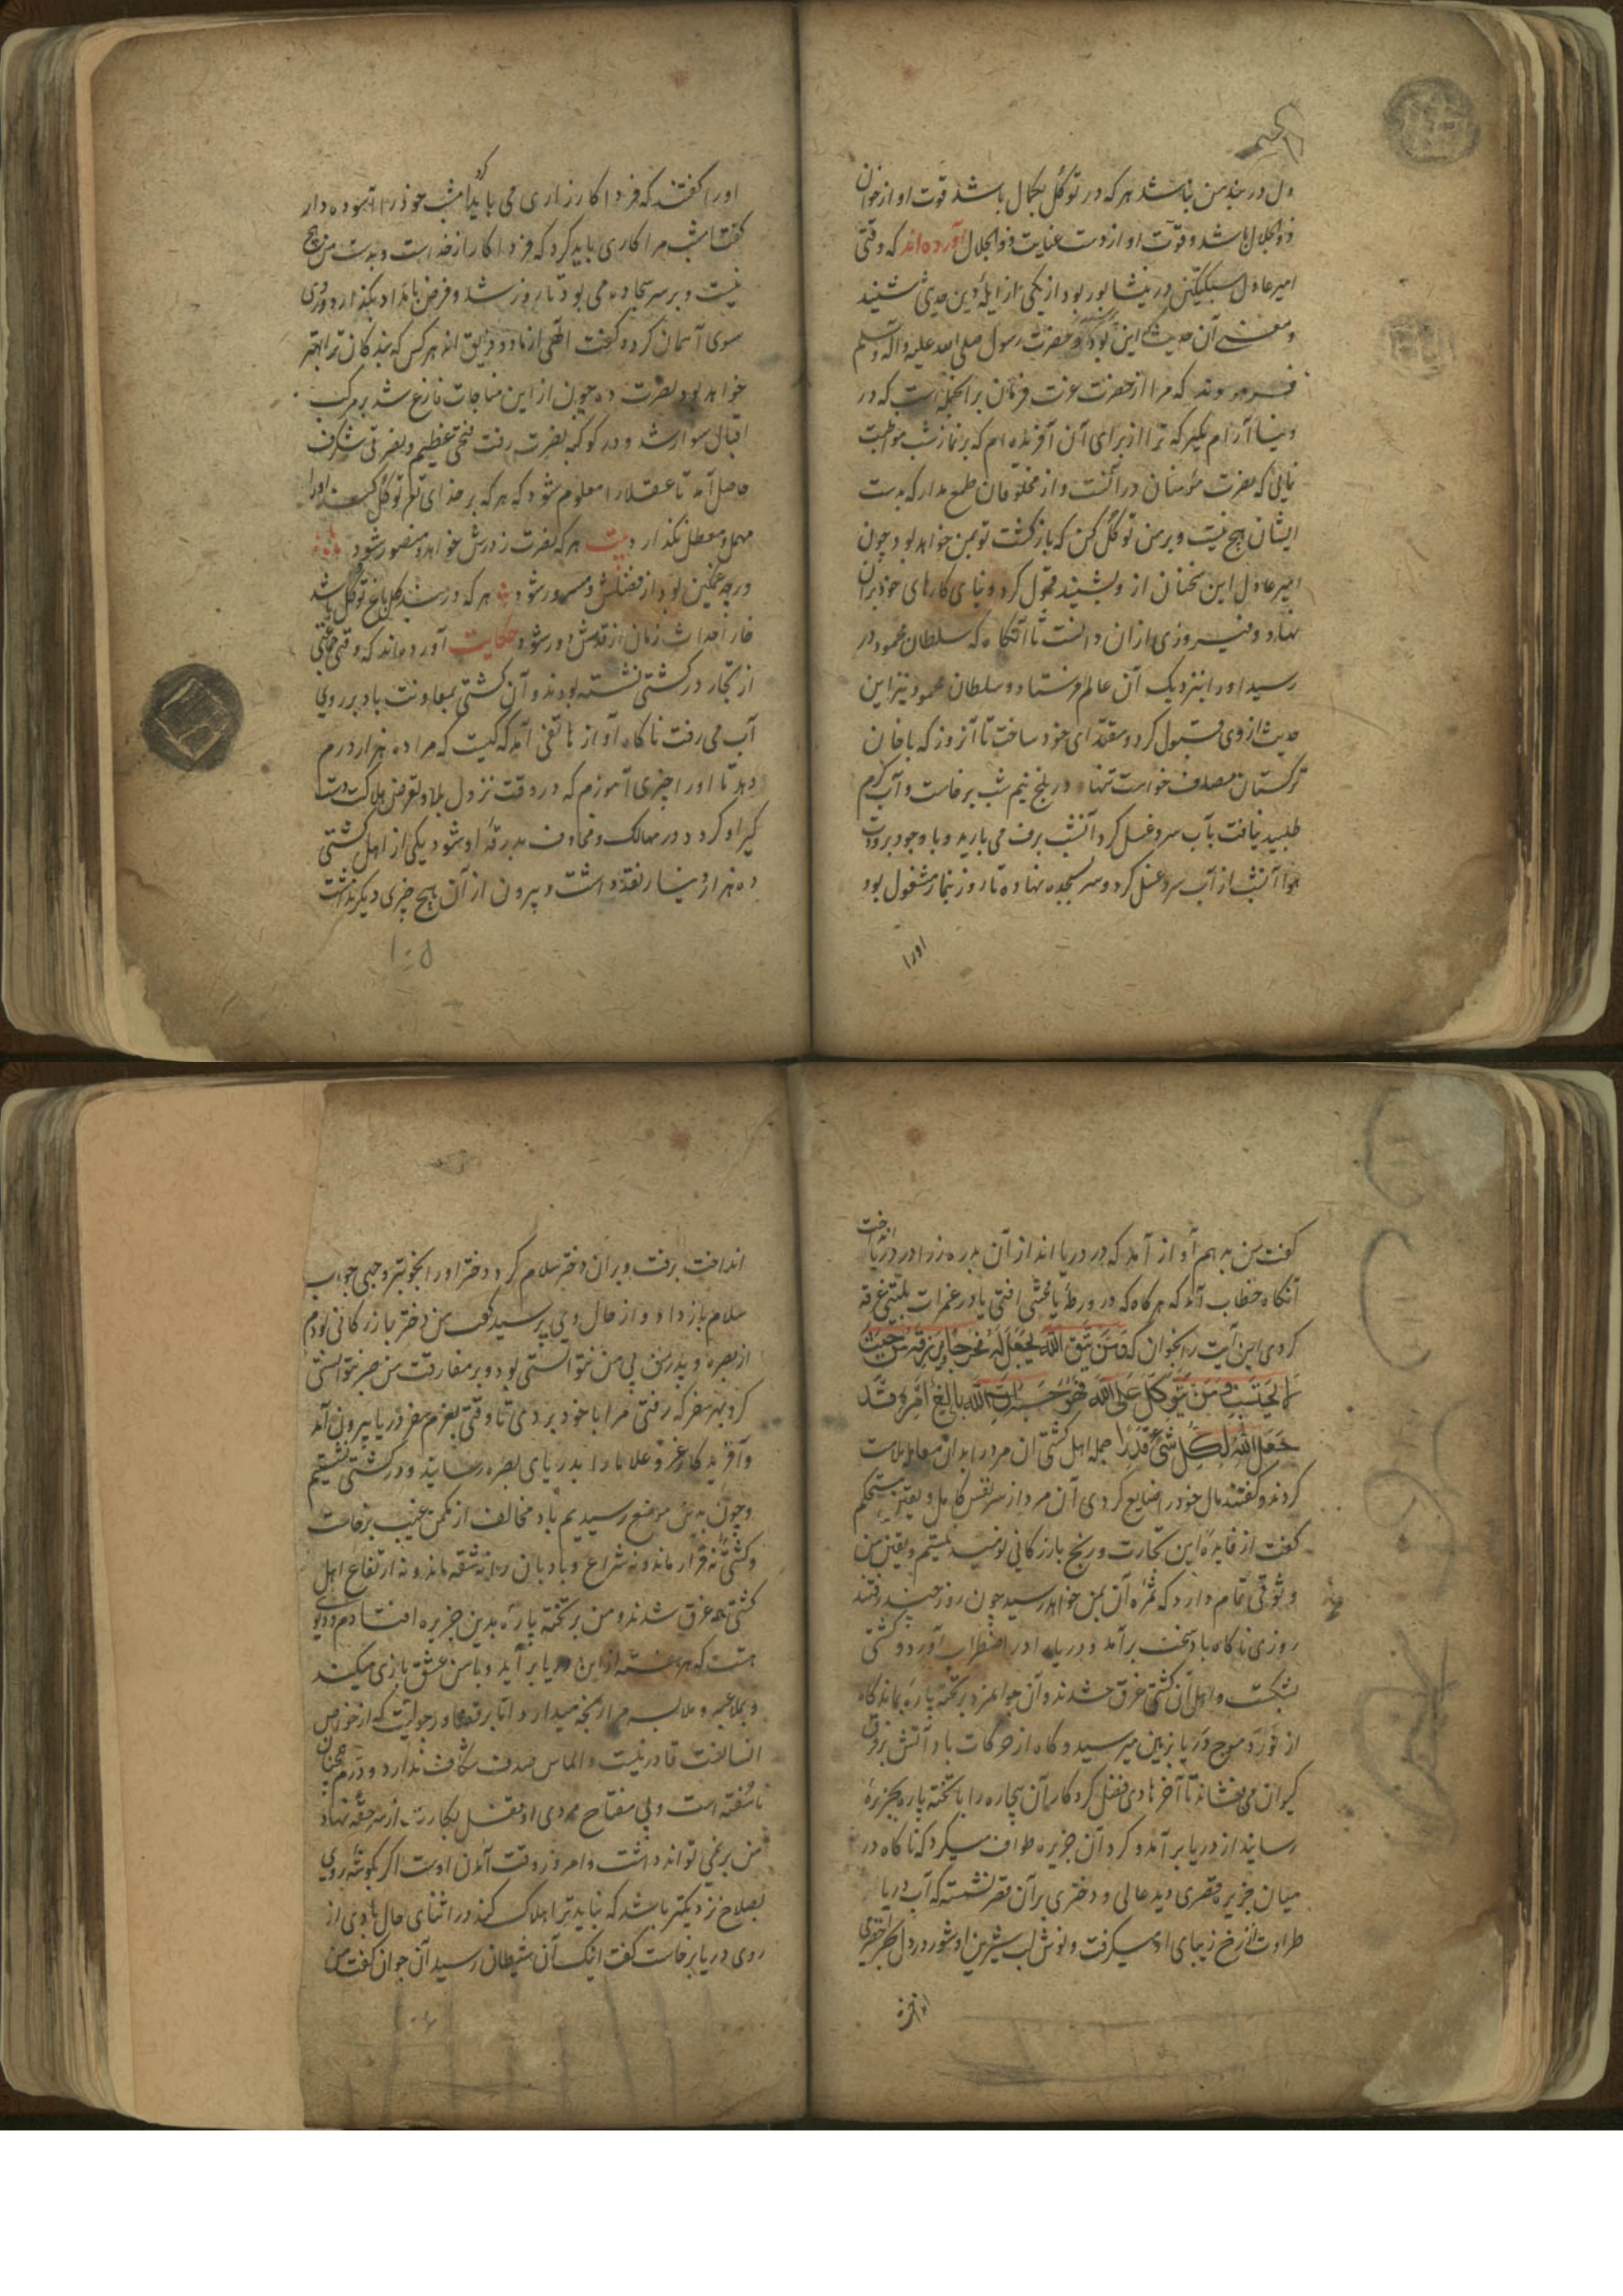 ول در بند من نباشد هر که در توکل بکمال باشد قوت او از خوان
ذوالجلال باشد و قوّت او از دست عنایت ذوالجلال آورده‌اند که وقتی
امیر عادل سبکتکین در نیشابور بود از یکی از ایمهٔ دین حدیثی شنید
و معنی آن حدیث این بود که حضرت رسول صلی الله علیه و آله و سلم
فرمودند که مرا از حضرت عزت فرمان بر آنجمله است که در
دنیا آرام مگیر که ترا از برای آن آفریده‌ام که بر نماز شب مواظبت
نمایی که نصرت مؤمنان در آنست و از مخلوقان طمع مدار که بدست
ایشان هیچ نیست و بر من توکل کن که بازگشت تو بمن خواهد بود چون
امیر عادل این سخنان از وی بشنید قبول کرد و بنای کارهای خود بران
نهاد و فیروزی ازان دانست تا آنگاه که سلطان محمود در
رسید او را بنزدیک آن عالم فرستاد و سلطان محمود نیز این
حدیث از وی قبول کرد و مقتدای خود ساخت تا آنروز که با خان
ترکستان مصاف خواست تنها در بلخ نیم شب برخاست و آب گرم
طلبید نیافت بآب سرد غسل کرد آنشب برف می بارید و با وجود برودت
هوا آنشب از آب سرد غسل کرد و سر بسجده نهاده تا روز بنماز مشغول بود
او را
او را گفتند که فردا کارزاری می باید کرد امشب خود را آسوده دار
گفت امشب مرا کاری باید کرد که فردا کار از خداست و بدست من هیچ
نیست و بر سر سجاده می بود تا روز شد و فرض بامداد بگذارد و روی
سوی آسمان کرده گفت الهی از ما دو فریق اند هر کس که بندگان ترا بهتر
خواهد بود نصرت ده چون از این مناجات فارغ شد بر مرکب
اقبال سوار شد و در کوکبه نصرت رفت فتحی عظیم و نصرتی شگرف
حاصل آمد تا عقلا را معلوم شود که هر که بر خدای تعالی توکل کند او را
مهمل و معطل نگذارد بیت هر که نصرت ز درش خواهد و منصور شود
ور چه غمگین بود از فضلش و مسرور شود هر که در سد گل باغ توکل باشد
خار احداث زمان از قدمش دور شود حکایت آورده‌اند که وقتی جمعی
از تجار در کشتی نشسته بودند و آن کشتی بمعاونت باد بر روی
آب می رفت ناگاه آواز هاتفی آمد که کیست که مرا ده هزار درم
دهد تا او را چیزی آموزم که در وقت نزول بلا و تعرض هلاکت دست
گیر او گردد و در مهالک و مخاوف بدرقهٔ او شود یکی از اهل کشتی
ده هزار دینار نقد داشت و بیرون از آن هیچ چیزی دیگر نداشت
۱۰۵
گفت من بدهم آواز آمد که در دریا انداز آن بدره زر را در دریا انداخت
آنگاه خطاب آمد که هر گاه که در ورطهٔ یا محنتی افتی یا در غمرات بلیتی غرقه
گردی این آیت را بخوان که وَمَن یَتَّقِ اللهَ یَجعَل لَهُ مَخرَجاً وَیَرزُقهُ مِن حَیثُ
لا یَحتَسِب وَمَن یَتَوَکَّل عَلَی اللهِ فَهُوَ حَسبُهُ اِنَّ اللهَ بالِغُ اَمرِهِ قَد
جَعَلَ اللهُ لِکُلِّ شَیءٍ قَدراً جمله اهل کشتی آن مرد را بدان معامله ملامت
کردند و گفتند مال خود را ضایع کردی آن مرد از سر نفس کامل و یقین مستحکم
گفت از فایدهٔ این تجارت و ربح بازرگانی نومید نیستم و یقین من
وثوقی تمام دارد که ثمرهٔ آن بمن خواهد رسید چون روز چند رفتند
روزی ناگاه باد سخت برآمد و دریا را در اضطراب آورد و کشتی
بشکست و اهل آن کشتی غرق شدند و آن جوانمرد بر تخته پاره بماند گاه
از فورد موج دریا بزمین میرسید و گاه از حرکات باد آتش بروی
کیوان می نشاند تا آخر هادی فضل کردگار آن بیچاره را با تخته پاره بجزیرهٔ
رسانید از دریا برآمد و گرد آن جزیره طواف میکرد که ناگاه در
میان جزیره قصری دید عالی و دختری بر آن قصر نشسته که آب دریا
طراوت از رخ زیبای او میگرفت و نوش لب شیرین او شور در دل بحر اخضر می
انداخت
انداخت برفت و بران دختر سلام کرد دختر او را بخوبتر وجهی جواب
سلام باز داد و از حال وی پرسید گفت من دختر بازرگانی بودم
از بصره و پدر من بی من نتوانستی بود و بر مفارقت من صبر نتوانستی
کرد بهر سفر که رفتی مرا با خود بردی تا وقتی بعزم سفر دریا بیرون آمد
وچون بدین موضع رسیدیم باد مخالف از مکمن غیب برخاست
و کشتی نه قرار ماند و نه شراع و بادبان را نه شقه ماند و نه ارتفاع اهل
کشتی همه غرق شدند و من بر تخته پارهٔ بدین جزیره افتادم و دیوی
هست که هر هفته از این دریا بر آید و با من عشق بازی میکند
و بملاعبه و ملابسه مرا رنجه میدارد
من بر نمی تواند داشت و امروز وقت آمدن اوست اگر بگوشهٔ روی
بصلاح نزدیکتر باشد که نباید ترا هلاک کند در اثنای حال بادی از
روی دریا برخاست گفت اینک آن شیطان رسید آن جوان گفت من